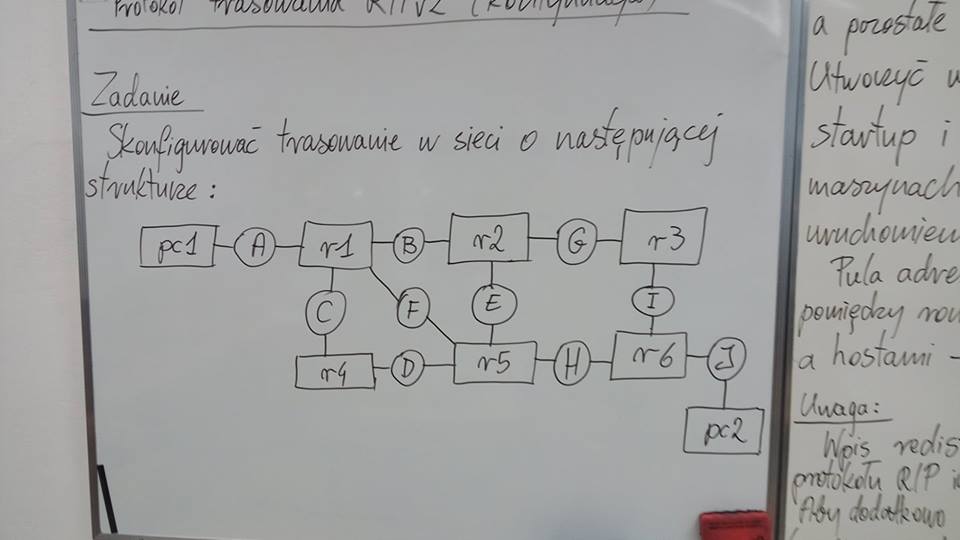 Protokół trasowania RIPv2 (konfiguracja)
Zadanie
Skonfigurować trasowanie w sieci o następującej
strukturze :
pc1 A r1 B r2 G r3
C F E I
r4 D r5 H r6 J
pc2
a pozostałe
Utworzyć w
startup i
maszynach
uruchomien
Pula adre
pomiędzy rou
a hostami -
Uwaga:
Wpis redis
protokołu RIP
Aby dodatkowo